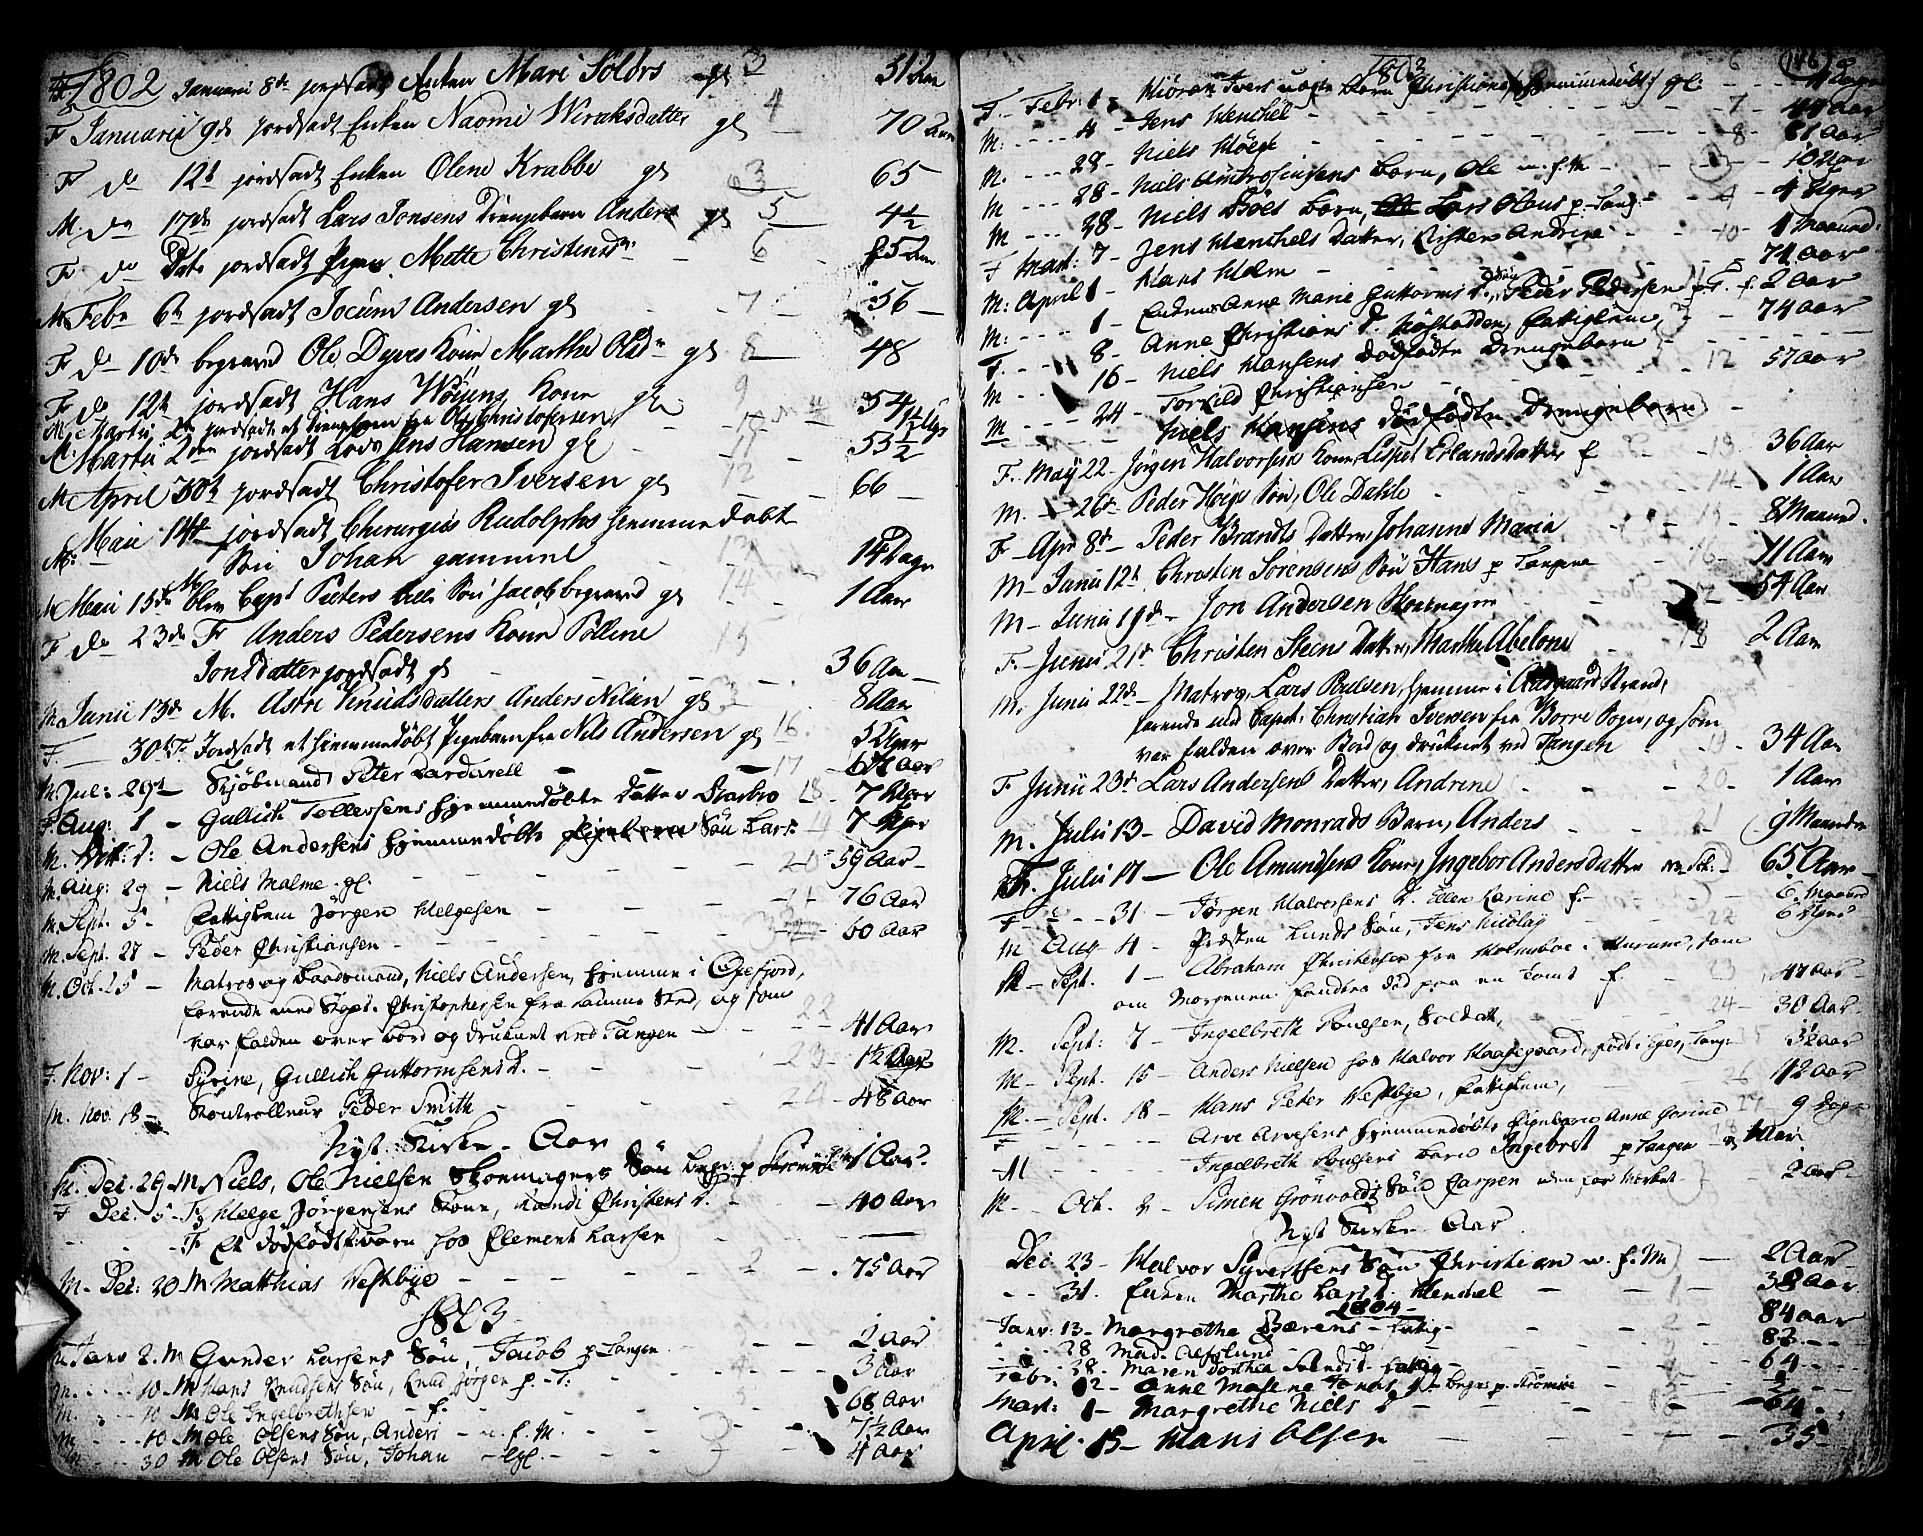 1802 Januarii 8de jordsadt Enken Mari Solørs gl 3 51 Aar
F Januarii 9de jordsadt Enken Naomi Wiraksdatter gl 4 70 Aar
F do 12t jordsadt Enken Olene Krabbe gl 3 65
M. do 17de jordsadt Lars Jonsens Drengebarn Anders gl 5 4½
F do Dato jordsadt Pigen Mette Christensdr 6 25 Aar
M Febr 6te jordsadt Jocum Andersen gl 7 56
F do 10de begraved Ole Dyres Kone Marthe Olsdr gl 8 48
F do 12te jordsadt Hans Wøyens Kone gl 9 54
M. Martii 2den jordsadt et Drengebarn fra Ole Christofersen
M. Martii 2den jordsadt Lods Jens Hansen gl 11 53½
M April 30te jordsadt Christofer Iversen gl 12 66
M: Maii 14de jordsadt Chirurgus Rudolphs hjemmedøbt
Søn Johan gammel 14 Dage
M Maii 15de blev Capt Peters lille Søn Jacob begraved gl 14 1 Aar
F do 23de F Anders Pedersens Kone Polline
Jonsdatter jordsadt gl 15 36 Aar
M Junii 13de M. Astri Knudsdatters Anders Nilsen gl 8 Aar
F. 30te F. Jordsadt et hjemmedøbt Pigebarn fra Nils Andersen gl 16 5 Uger
M. Jul: 29de Skjøbmand Peter Dardarell 17
F. Aug: 1 Gullich Tollefsens hjemmedøbte Datter Barbro 18 7 Uger
M. Ole Andersens hjemmedøbte Søn Lars 7 Uger
M. Aug: 29 Niels Malme gl. 20 59 Aar
M. Sept. 5 Fattiglem Jørgen Helgesen 21 76 Aar
M. Sept. 27 Peder Christiansen 60 Aar
M. Oct. 25 Matros og Baadsmand, Niels Andersen, hjemme i
farende med Skipr. Christophersen fra samme Sted, og som
var falden over bord og druknet ved Tangen 22 41 Aar
F. Nov: 1 Syrine, Gullich Guttormsens D. 23 1½ Aar
M. Nov. 18 Kontrolleur Peder Smith 24 48 Aar
Nyt Kirke Aar
M. Dec. 29 M Niels, Ole Nielsen Skomagers Søn begr. p Strømsøe 1 Aar
F Dec. 5 F Helge Jørgensens Kone, Randi Christens D. 40 Aar
F Et dødfødt barn hos Clement Larsen
M. Dec: 20 M Matthias Westbye 2 75 Aar
1803
M Janv 2. M Gunder Larsens Søn, Jacob p Tangen 2 Aar
M. 10 M Hans Knudsens Søn, Knud Jørgen p. T. 3 Aar
M. 10 M Ole Ingelbrethsen f. 68 Aar
M 10 M Ole Olsens Søn, Anders u. f. M. 7½ Aar
M 30 M Ole Olsens Søn, Johan gl. 4 Aar
1803 146
F. Febr: 1 Ivers uægte Barn Christiane hjemmedøbt gl. 6
M. 4 Jens Henchel 7 49 Aar
M. 28 Niels Høegh 8 61 Aar
M 28 Niels Ambrosiussens Barn, Ole u. f. M 10 Uger
M 28 Niels Boes Barn, Lars Olaus p. Tang. 4 Uger
F Mart: 7 Jens Henchels Datter, Andrine 10 1 Maaned
M: April 1 Hans Holm 74 Aar
M: 1 Enken Anne Marie Guttorms D. Søn Peder Pedersen p. T. f. 2 Aar
F. 8 Anne Christians D. Fattiglem 74 Aar
M 16 Niels Hansens dødfødte Drengebarn
M 24 Torkild Christiansen 12 57 Aar
Niels Hansens dødfødte Drengebarn
F. Maji 22 Jørgen Halvorsens Kone Lispet Erlandsdatter f 13 36 Aar
M. 26de Peder Høegs Søn, Ole Dahle 14 1 Aar
F Apr 8de Peder Brandts Datter, Johanne Maria 15 8 Maaned.
M Junii 12t Christen Sørensens Søn Hans p Tangen 16 11 Aar
M Junii 19de Jon Andersen 17 54 Aar
F. Junii 21de Christen Steens Datter, Marthe Abelone 18 2 Aar
M. Junii 22de Matros, Lars Poulsen, hjemme i Aasgaard Strand,
farende med Capit. Christian Iversen fra Borre Sogn, og som
var falden over Bord og druknet ved Tangen 19 34 Aar
F Junii 23de Lars Andersens Datter, Andrine 20 1 Aar
M. Julii 13 David Monrads Barn, Anders 21 9 Maaneder
F. Julii 17 Ole Amundsens Kone, Ingebor Andersdatter 65 Aar
F 31 Jørgen Halvorsens D. Ellen Karine f. 6 Maaned
M Aug 4 Presten Lunds Søn, Jens Nicolay 22 6 Uger
M Sept. 1 Abraham Christensen fra Holmsboe i Hurum, som
om Morgenen fandtes død paa en Tomt f 23 47 Aar
M. Sept: 7 Ingelbreth Poulsen, Soldat, 24 30 Aar
M Sept. 15 Anders Nielsen hos Halvor Haasegaard, født i Eger, Tang.
M. Sept. 18 Hans Peter Westbye, Fattiglem, 26
F Arve Arvesens hjemmedøbte Pigebarn Anne Gorine 27 9 Dage
M Ingelbreth Poulsens Barn Ingebret p Tangen 28
M. Oct. 2 Simen Grønvolds Søn Casper 2 Aar
Nyt Kirke Aar
Dec. 23 Halvor Syvertsens Søn Christian u. f. M 2 Aar
31. Enken Marthe Lars D. Henchel 1 38 Aar
1804
Janv: 13 Margrethe Bærens Fattig 2 84 Aar
28 Mad. Aefslund 83
Febr: 28 Maren Dorthea Fattig 64
12 Anne Malene begr. p. Strømsøe
Mart: 1 Margrethe Niels D 64
April 15 Hans Olsen 35